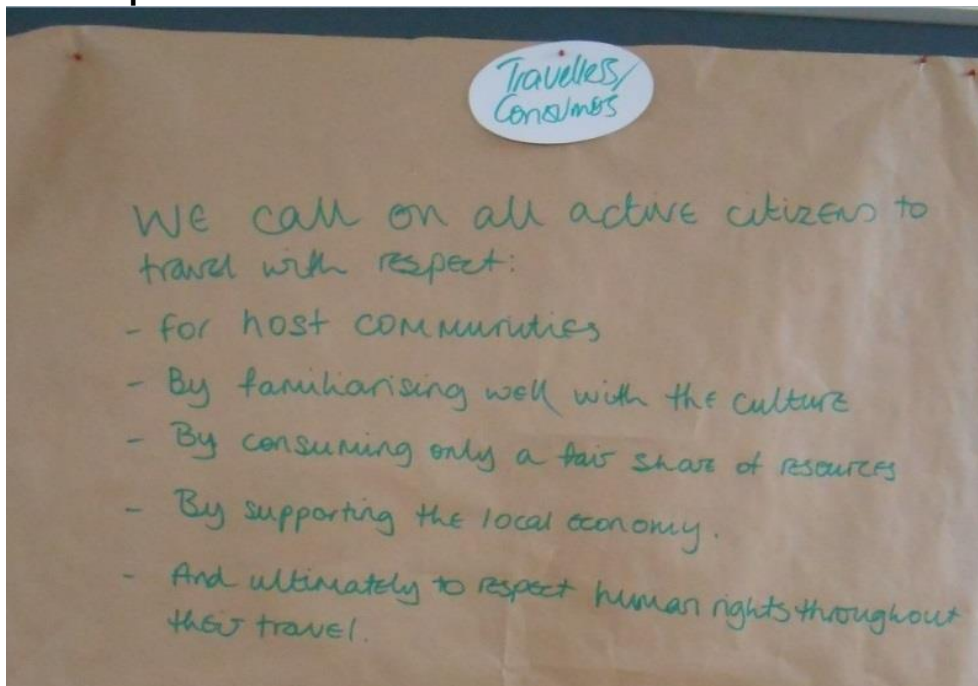 Travellers/
Consumers
WE call on all active citizens to
travel with respect:
- for host communities
- By familiarising well with the culture
- By consuming only a fair share of resources
- By supporting the local economy.
- And ultimately to respect human rights throughout
their travel.